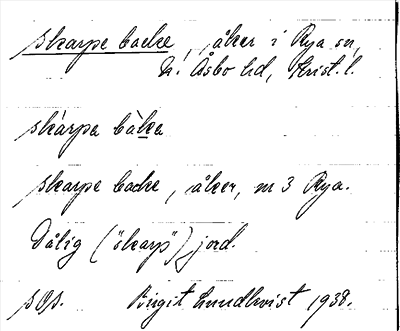 skarpe backe, åker i Rya sn,
N. Åsbo hd, Krist. l.
skàrpa bàka
skarpe backe, åker, nr 3 Rya.
Dålig ("skarp") jord.
Birgit Lundkvist 1938.